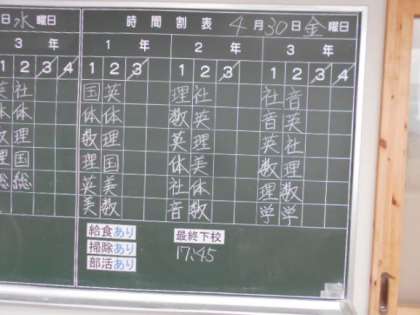 日 水 曜日 時間割表 4月30日 金曜日
3年 1年 2年 3年
1 2 3 4 1 2 3 1 2 3 1 2 3 4
英 社 国 英 理 社 社 音
体 体 体 体 数 英 音 英
数 理 数 理 英 理 英 社
理 国 理 国 体 美 数 理
総 総 英 美 社 体 理 数
美 数 音 数 学 学
給食あり 最終下校
掃除あり 17:45
部活あり